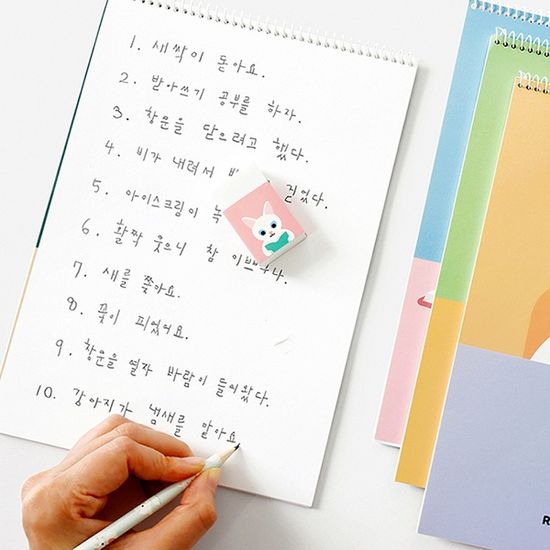 1. 새싹이 돋아요.
2. 받아쓰기 공부를 하자.
3. 창문을 닫으려고 했다.
4. 비가 내려서 젔었다.
5. 아이스크림이 녹
6. 활짝 웃으니 참 이쁘구나.
7. 새를 쫓아요.
8. 꽃이 피었어요.
9. 창문을 열자 바람이 들어왔다.
10. 강아지가 냄새를 맡아요
R